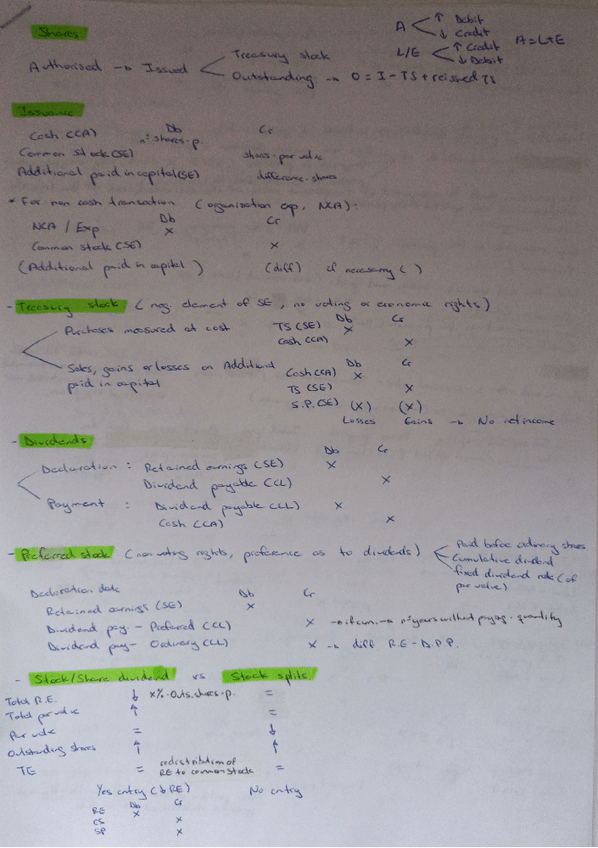 Shares
A ↑ Debit
↓ Credit
L/E ↑ Credit
↓ Debit
A=L+E
Authorised → Issued
Treasury stock
Outstanding → O = I - TS + reissued TS
Issuance
Db Cr
Cash (CA) nº shares · p.
Common stock (SE) shares · par value
Additional paid in capital (SE) difference · shares
* For non cash transaction (organisation exp, NCA):
Db Cr
NCA / Exp X
Common stock (SE) X
(Additional paid in capital) (diff) if necessary ( )
- Treasury stock (neg. element of SE, no voting or economic rights)
Purchases measured at cost
Db Cr
TS (SE) X
Cash (CA) X
Sales, gains or losses on Additional
paid in capital
Db Cr
Cash (CA) X
TS (SE) X
S.P. (SE) (X) (X)
Losses Gains → No net income
- Dividends
Db Cr
Declaration : Retained earnings (SE) X
Dividend payable (CL) X
Payment : Dividend payable (CL) X
Cash (CA) X
- Preferred stock (non voting rights, preference as to dividends)
Paid before ordinary shares
Cumulative dividend
fixed dividend rate (of
par value)
Declaration date
Db Cr
Retained earnings (SE) X
Dividend pay. - Preferred (CL) X → if cum. → nº years without paying · quantity
Dividend pay - Ordinary (CL) X → diff R.E - D.P.P.
- Stock/Share dividend vs Stock splits
Total R.E. ↓ X% · Outs. shares · p. =
Total par value ↑ =
Par value = ↓
Outstanding shares ↑ ↑
TE = redistribution of RE to common stock =
Yes entry (↓ RE) No entry
Db Cr
RE X
CS X
SP X